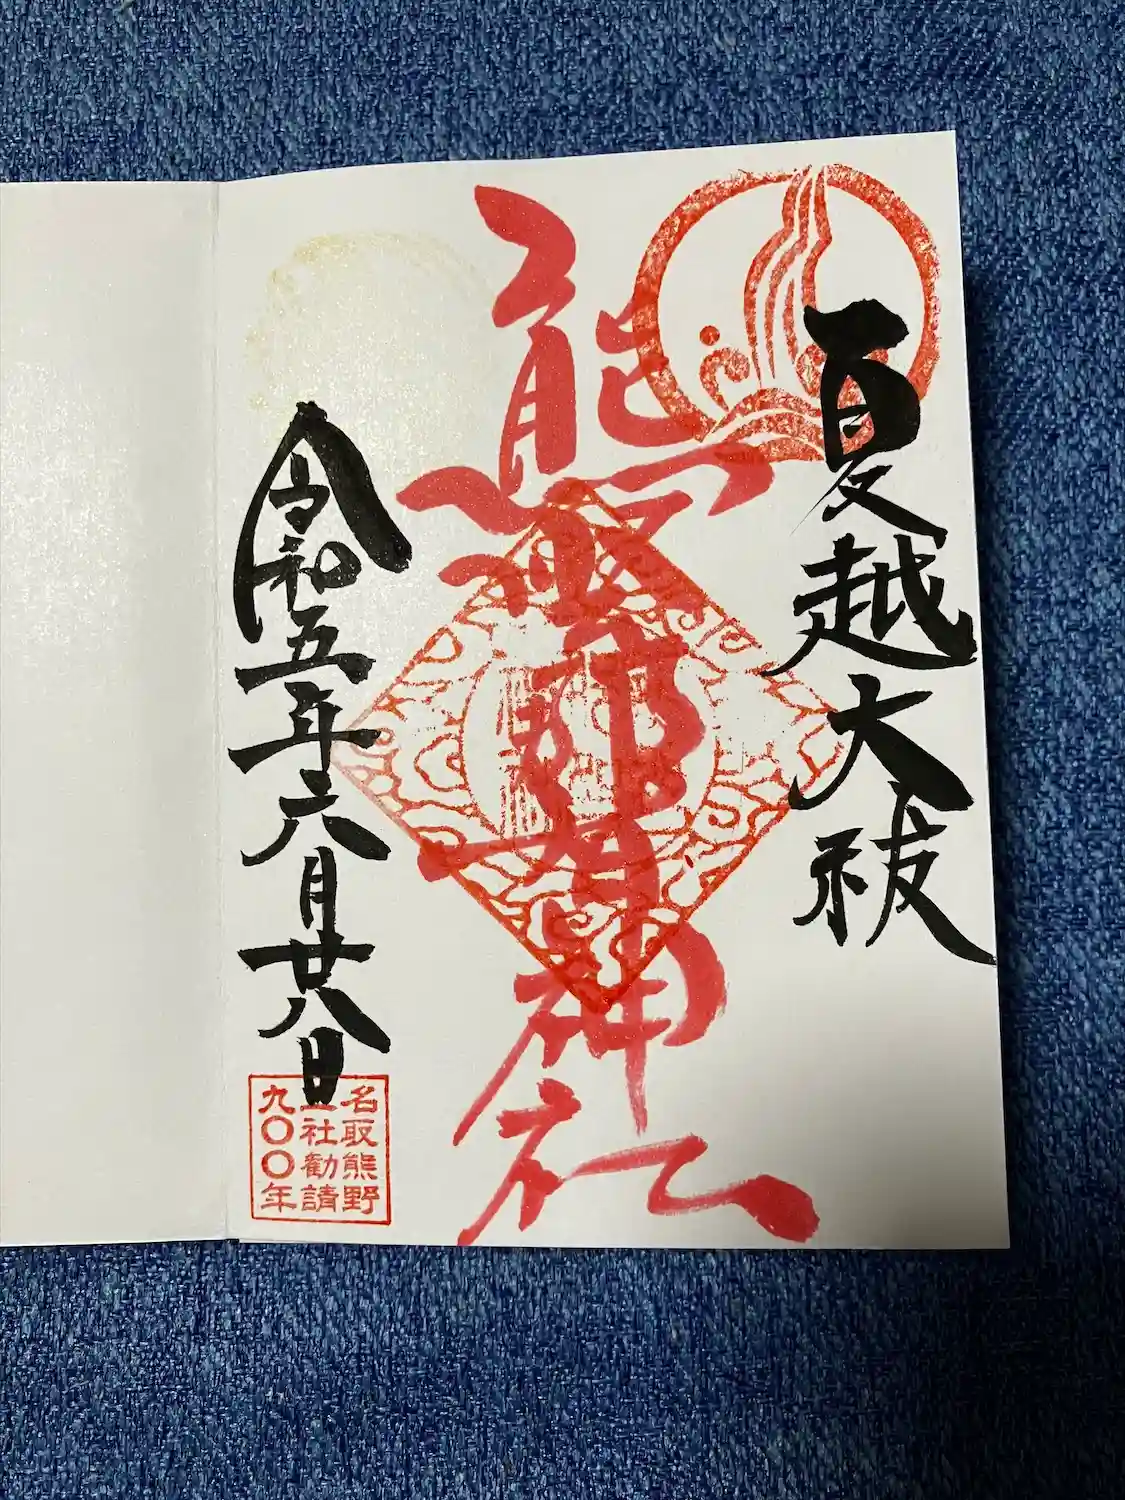 夏越大祓
熊野那智神社
令和五年六月廿八日
名取熊野
三社勧請
九〇〇年